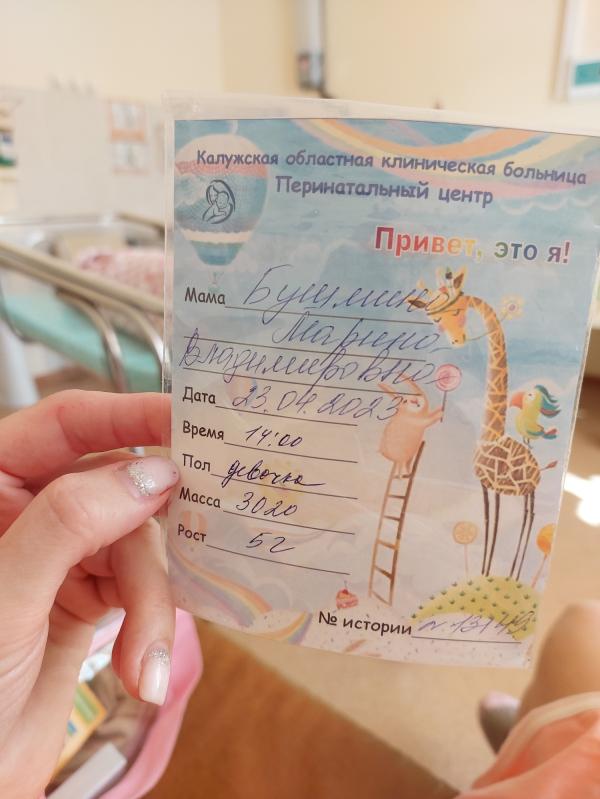 Калужская областная клиническая больница
Перинатальный центр
Привет, это я!
Мама Бушмина
Марина
Владимировна
Дата 23.04.2023
Время 14:00
Пол девочка
Масса 3020
Рост 52
№ истории